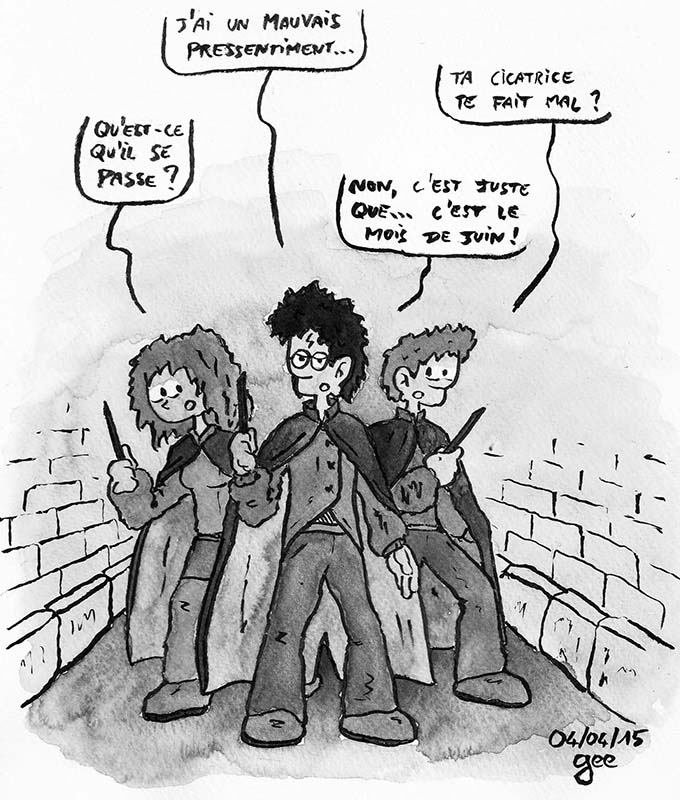 J'AI UN MAUVAIS
PRESSENTIMENT...
QU'EST-CE
QU'IL SE
PASSE ?
TA CICATRICE
TE FAIT MAL ?
NON, C'EST JUSTE
QUE... C'EST LE
MOIS DE JUIN !
04/04/15
gee